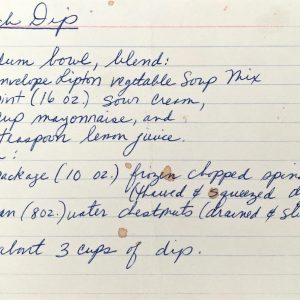 ch Dip
dum bowl, blend:
nvelope Lipton vegetable Soup Mix
int (16 oz.) sour cream,
up mayonnaise, and
teaspoon lemon juice.
:
ackage (10 oz.) frozen chopped spin
(thawed & squeezed d
an (8oz.) water chestnuts (drained & sli
about 3 cups of dip.